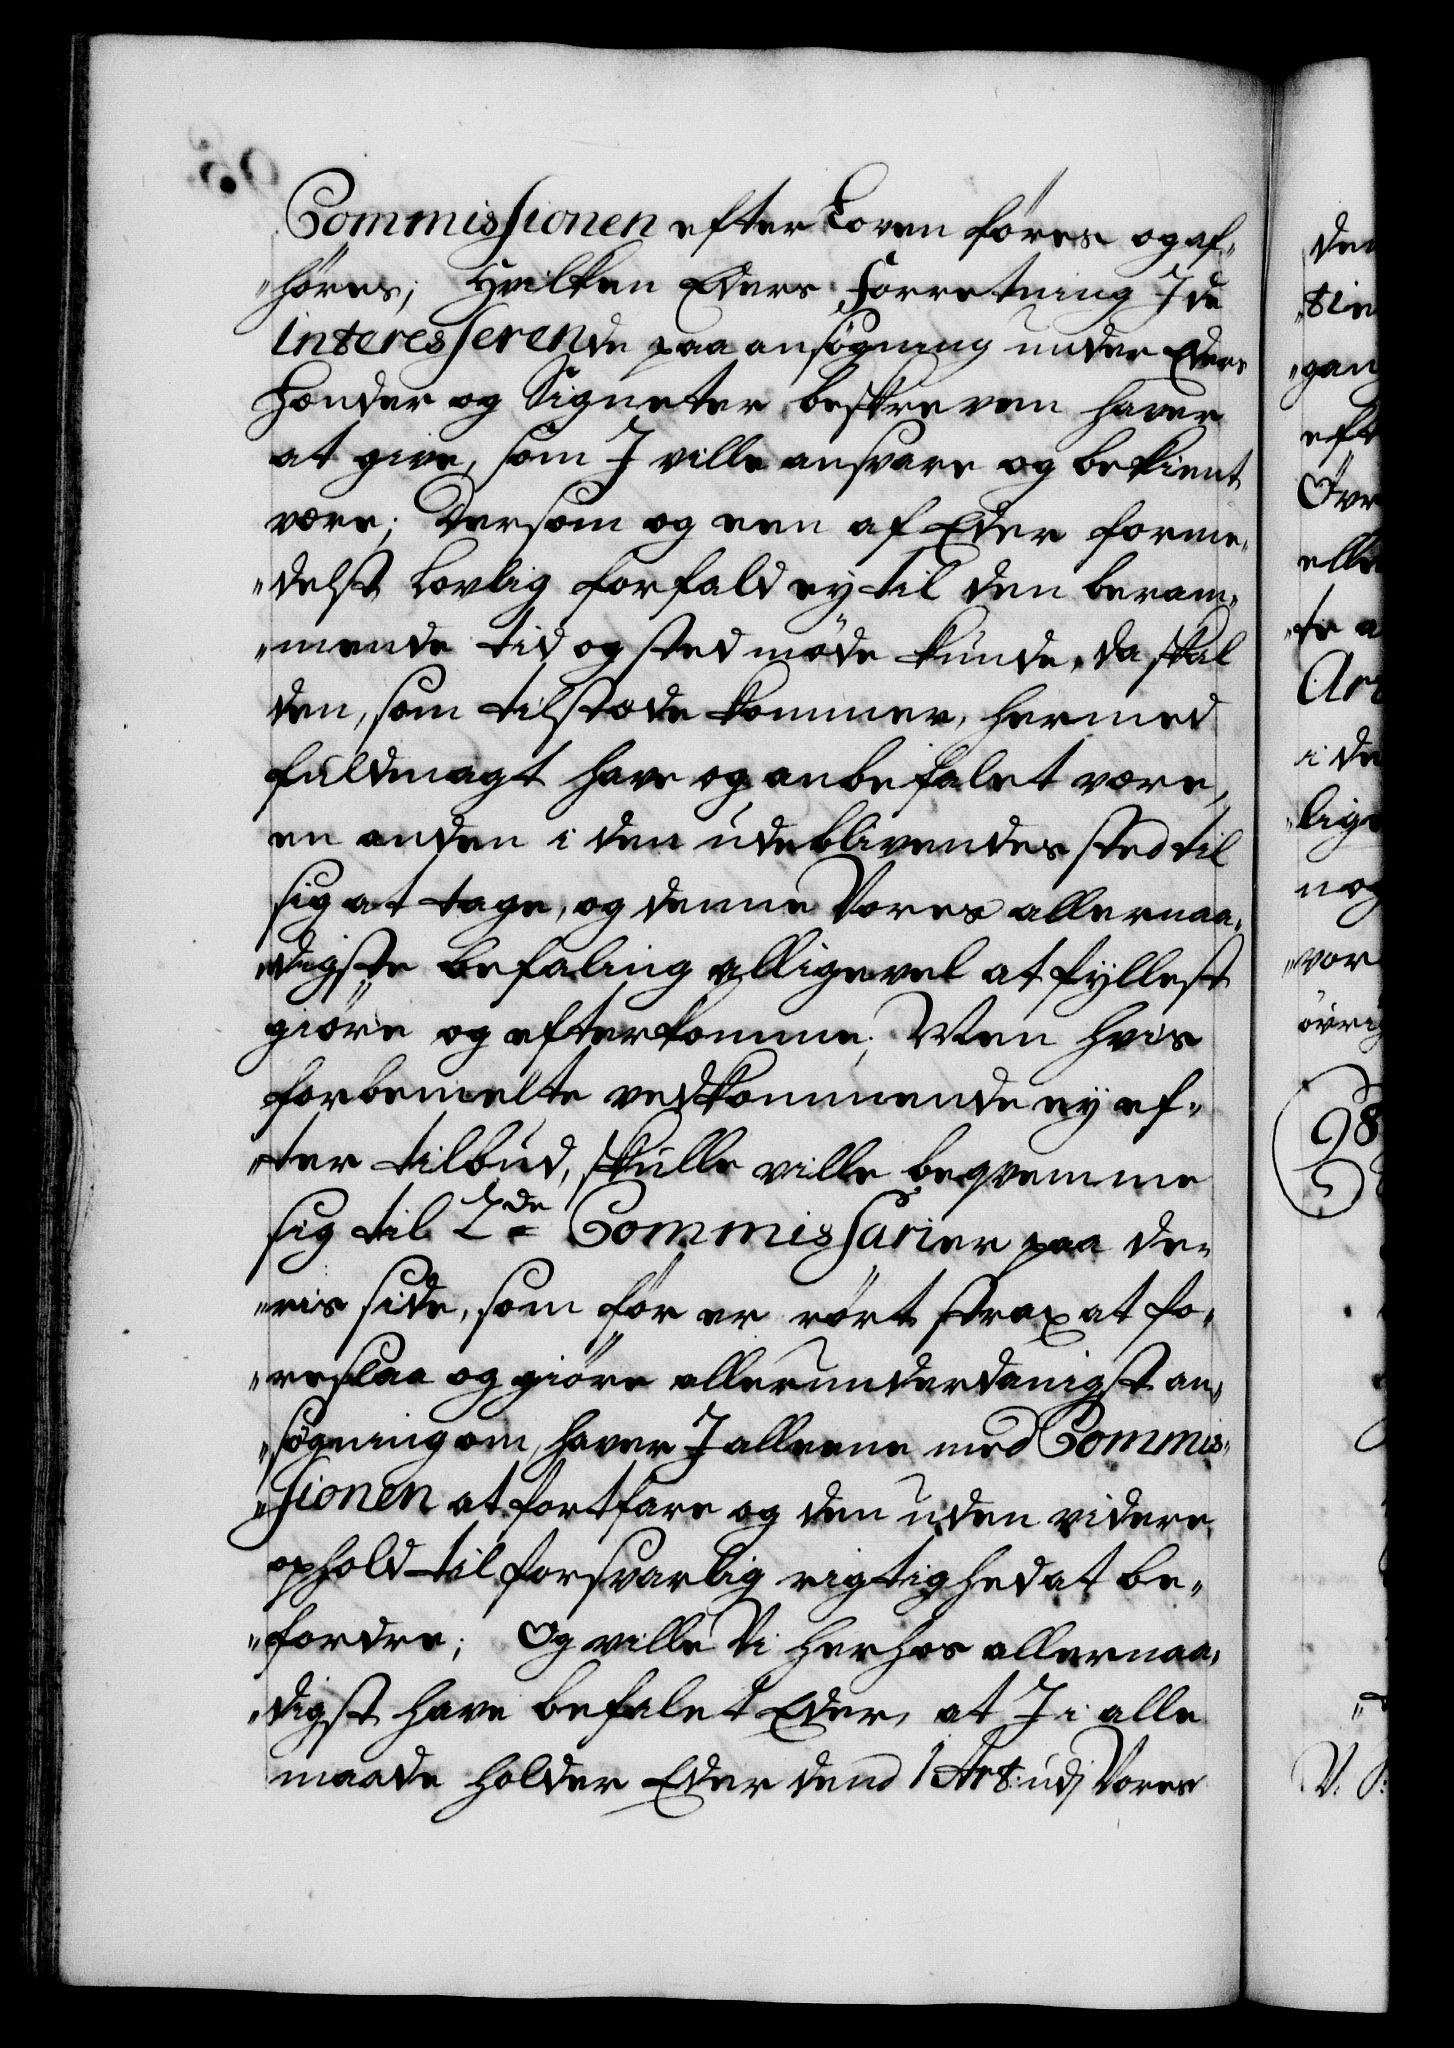 Commissionen efter Loven føres og af-
"høres; Hvilken Eders Forretning I de
interesserende paa ansøgning under Eders
Hænder og Signeter beskreven haver
at give, som I ville ansvare og bekient
være; Dersom og een af Eder forme-
"delst Lovlig forfald ey til den beram-
"mende tid og sted møde kunde, da skal
den, som tilstæde kommer, hermed
fuldmagt have og anbefalet være,
en anden i den udeblivendes sted til
sig at tage, og denne Vores allernaa-
"digste befaling alligevel at fyllest
giøre og efterkomme; Men hvis
forbemelte vedkommende ey ef-
"ter tilbud, skulle ville beqvemme
sig til 2de Commissarier paa de-
"ris side, som før er rørt strax at fo-
"reslaa og giøre allerunderdanigst an-
"søgning om, haver I alleene med Commis-
"sionen at fortfare og den uden videre
ophold til forsvarlig rigtighed at be-
"fordre; Og ville Vi herhos allernaa-
"digst have befalet Eder, at I i alle
maade holder Eder dend 1 Art: udj Vores
den
"tie
"gan
eft
Øvr
elle
"te a
Ar
i de
"lige
nog
"vor
øvrig
98
V.